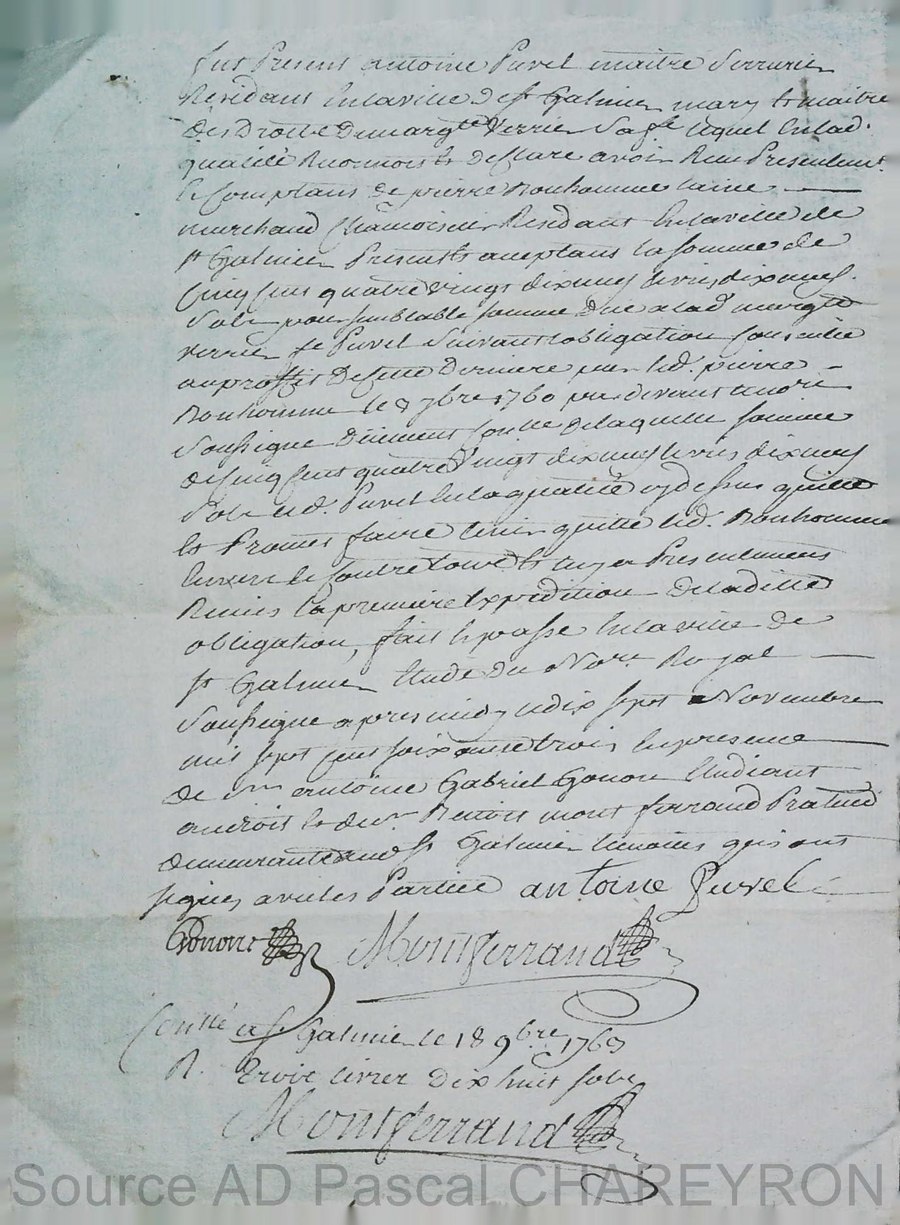 fut Present antoine Purel maitre Serrurier
Résidant En la ville de st Galmier mary & maitre
des Droits de margte Verrier Sa fe lequel En lad.
qualité Reconnoit & declare avoir Reçu Presentemt
& Comptant de pierre Bonhomme laine
marchand Chamoiseur Residant En la ville de
st Galmier Present & aceptant la somme de
Cinq cent quatre vingt dix neuf livres dix neuf
Sols pour semblable somme due a lad margte
verrier fe Purel Suivant obligation consentie
au proffit de cette Derniere par led. pierre
Bonhomme le 9 7bre 1760 par devant le nore
Soussigné Duement Conllé de laquelle somme
de Cinq cent quatre Vingt dix neuf livres dix neuf
Sols led. Purel En la qualité cy dessus quitte
& Promet faire tenir quitte led. Bonhomme
Envers & contre tous & luy a Presentement
Remis la premiere Expedition de laditte
obligation, fait & passé En la ville de
st Galmier Etude du Nore Royal
Soussigné apres midy le dix sept Novembre
mil sept cent soixante trois En presence
de antoine Gabriel Gonon Etudiant
en droit & de Benoit mont ferrand Praticien
demeurants aud st Galmier temoins qui ont
signé, avec les Parties antoine Purel
Gonon Montferrand
Conllé a st Galmier le 18 9bre 1763
R. trois livres dix huit sols
Montferrand
Source AD Pascal CHAREYRON